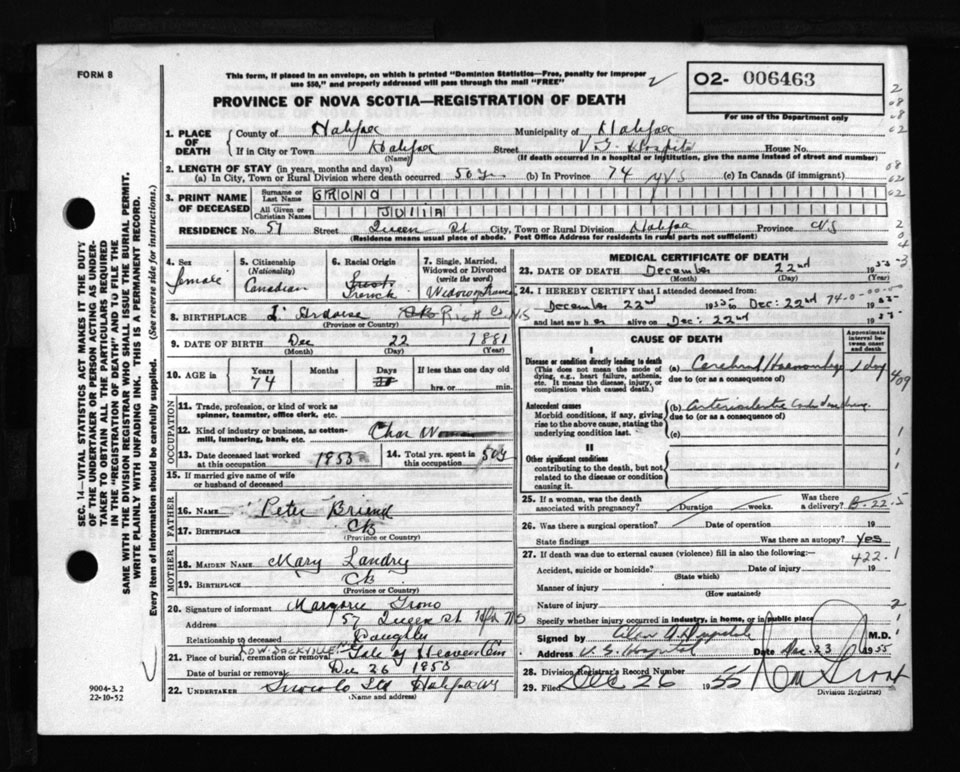 FORM 8
This form, if placed in an envelope, on which is printed "Dominion Statistics—Free, penalty for improper
use $50," and properly addressed will pass through the mail "FREE"
2
02- 006463
For use of the Department only
PROVINCE OF NOVA SCOTIA—REGISTRATION OF DEATH
1. PLACE OF DEATH
County of Halifax Municipality of Halifax
If in City or Town Halifax Street V.G. Hospital House No.
(Name) (If death occurred in a hospital or institution, give the name instead of street and number)
2. LENGTH OF STAY (in years, months and days)
(a) In City, Town or Rural Division where death occurred 50 yrs (b) In Province 74 yrs (c) In Canada (if immigrant)
3. PRINT NAME OF DECEASED
Surname or Last Name GRONO
All Given or Christian Names JULIA
RESIDENCE No. 57 Street Queen St City, Town or Rural Division Halifax Province NS
(Residence means usual place of abode. Post Office Address for residents in rural parts not sufficient)
4. Sex
Female
5. Citizenship
(Nationality)
Canadian
6. Racial Origin
French
7. Single, Married, Widowed or Divorced
(write the word)
Widow
8. BIRTHPLACE L'Ardoise Rich Co NS
(Province or Country)
9. DATE OF BIRTH Dec 22 1881
(Month) (Day) (Year)
10. AGE in
Years Months Days If less than one day
74
hrs. or min.
OCCUPATION
11. Trade, profession, or kind of work as
spinner, teamster, office clerk, etc.
12. Kind of industry or business, as cotten-
mill, lumbering, bank, etc. Char Woman
13. Date deceased last worked
at this occupation 1953
14. Total yrs. spent in
this occupation 50
15. If married give name of wife
or husband of deceased
FATHER
16. NAME Peter Briand
17. BIRTHPLACE CB
(Province or Country)
MOTHER
18. MAIDEN NAME Mary Landry
19. BIRTHPLACE CB
(Province or Country)
20. Signature of informant Margorie Grono
Address 57 Queen St Hfx NS
Relationship to deceased Daughter
LOW. SACKVILLE
21. Place of burial, cremation or removal Gate of Heaven Cem
Date of burial or removal Dec 26 1953
22. UNDERTAKER Snow Co Ltd Halifax NS
(Name and address)
MEDICAL CERTIFICATE OF DEATH
23. DATE OF DEATH December 22nd
(Month) (Day) (Year)
24. I HEREBY CERTIFY that I attended deceased from:
December 22nd Dec: 22nd
and last saw her alive on Dec: 22nd
CAUSE OF DEATH
Approximate interval between onset and death
I
Disease or condition directly leading to death
(This does not mean the mode of dying, e.g., heart failure, asthenia, etc. It means the disease, injury, or complication which caused death.)
(a) Cerebral Haemorrhage 1 day
due to (or as a consequence of)
Antecedent causes
Morbid conditions, if any, giving rise to the above cause, stating the underlying condition last.
(b)
due to (or as a consequence of)
(c)
II
Other significant conditions
contributing to the death, but not related to the disease or condition causing it.
25. If a woman, was the death
associated with pregnancy? Duration weeks. Was there a delivery?
26. Was there a surgical operation? Date of operation 19
State findings Was there an autopsy? Yes
27. If death was due to external causes (violence) fill in also the following:—
422.1
Accident, suicide or homicide? Date of injury 19
(State which)
Manner of injury
(How sustained)
Nature of injury
Specify whether injury occurred in industry, in home, or in public place
Signed by M.D.
Address V.G. Hospital Date Dec. 23 1955
28. Division Registrar's Record Number
29. Filed Dec 26 1955
Division Registrar
9004-3.2
22-10-52
SEC. 14—VITAL STATISTICS ACT MAKES IT THE DUTY
OF THE UNDERTAKER OR PERSON ACTING AS UNDER-
TAKER TO OBTAIN ALL THE PARTICULARS REQUIRED
IN THE "REGISTRATION OF DEATH" AND TO FILE THE
SAME WITH THE DIVISION REGISTRAR WHO SHALL ISSUE THE BURIAL PERMIT.
WRITE PLAINLY WITH UNFADING INK. THIS IS A PERMANENT RECORD.
Every item of information should be carefully supplied. (See reverse side for instructions.)